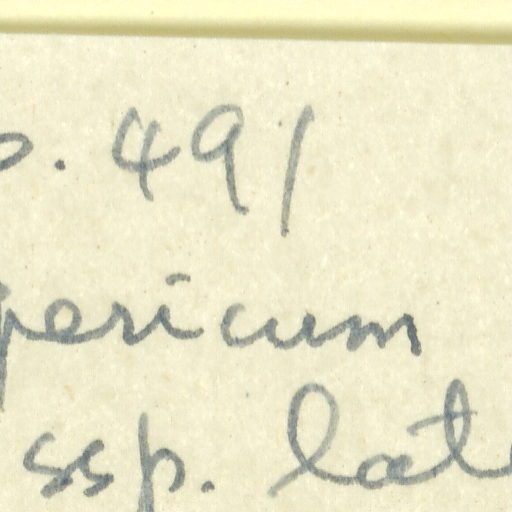 o. 491
pericum
ssp. lat